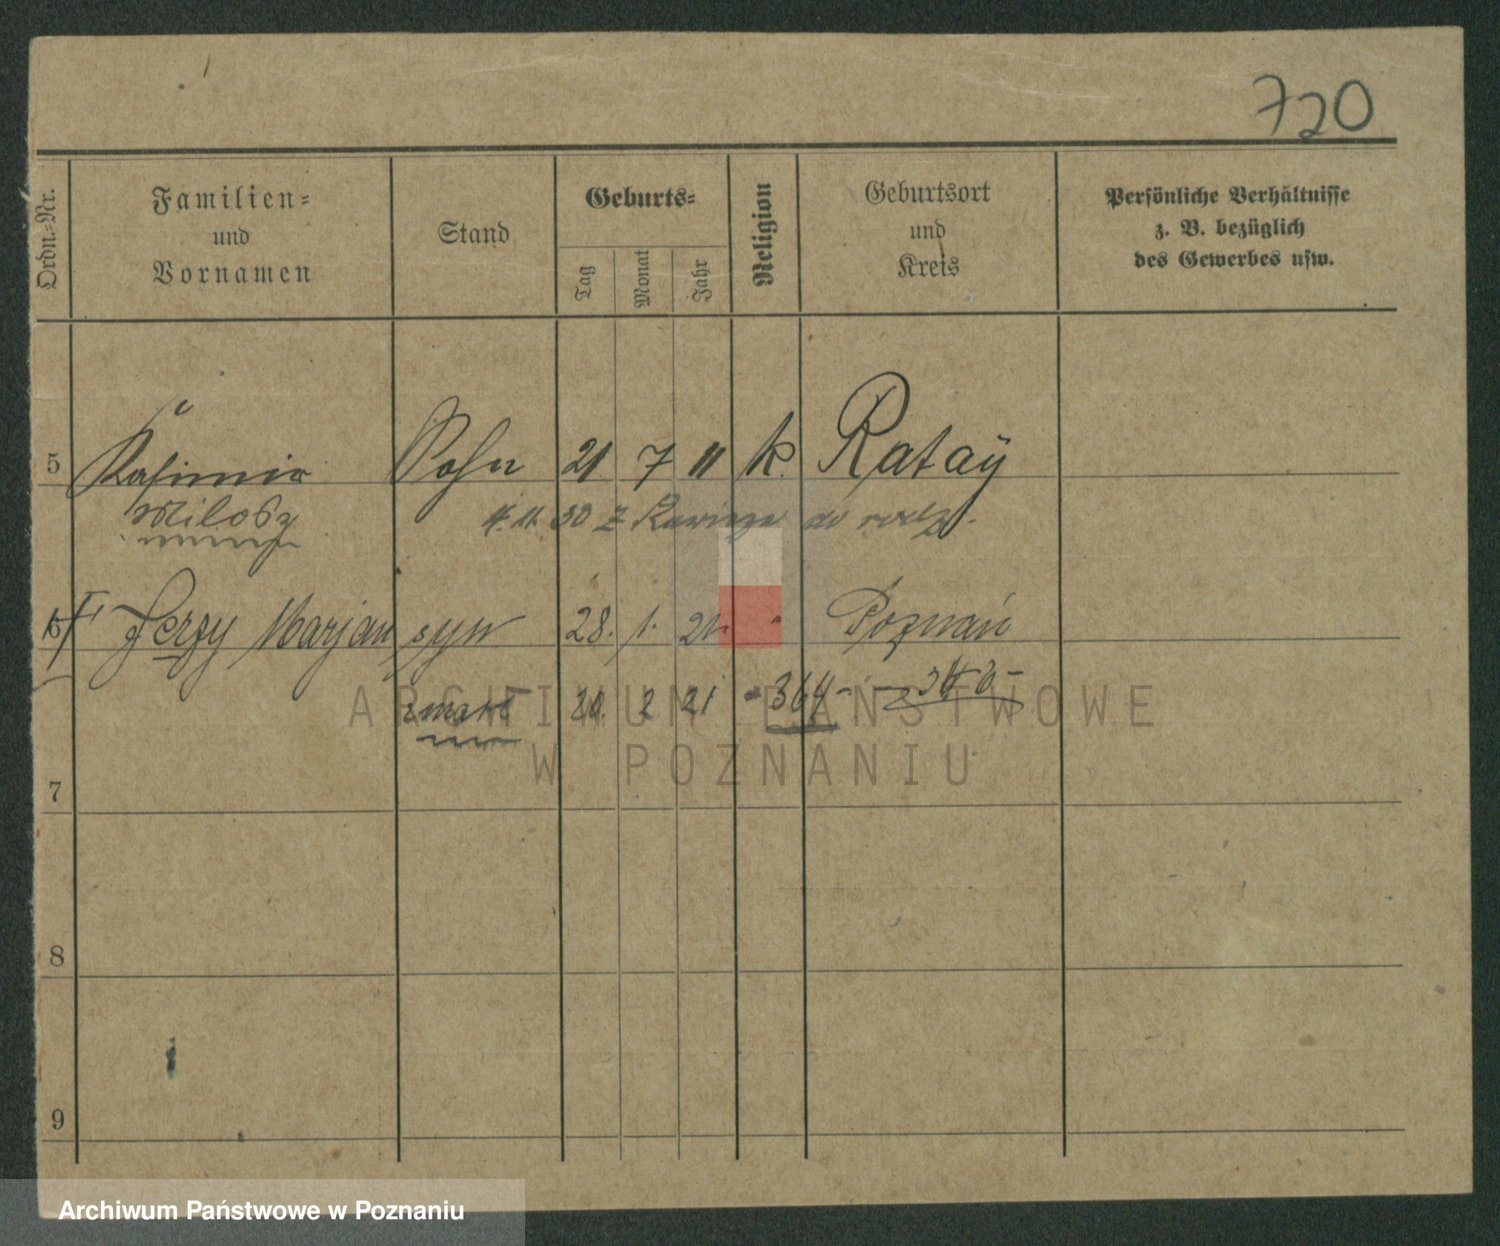 720
Ordn.-Nr.
Familien-
und
Vornamen
Stand
Geburts-
Tag
Monat
Jahr
Religion
Geburtsort
und
Kreis
Persönliche Verhältnisse
z. B. bezüglich
des Gewerbes usw.
5 Kasimir Sohn 21 7 11 k. Rataÿ
30 z do
6 Jerzy Marjan syn 28. 1. 21. Poznań
zmarł 20. 2 21 - 364 -
ARCHIWUM PAŃSTWOWE
W POZNANIU
7
8
9
Archiwum Państwowe w Poznaniu